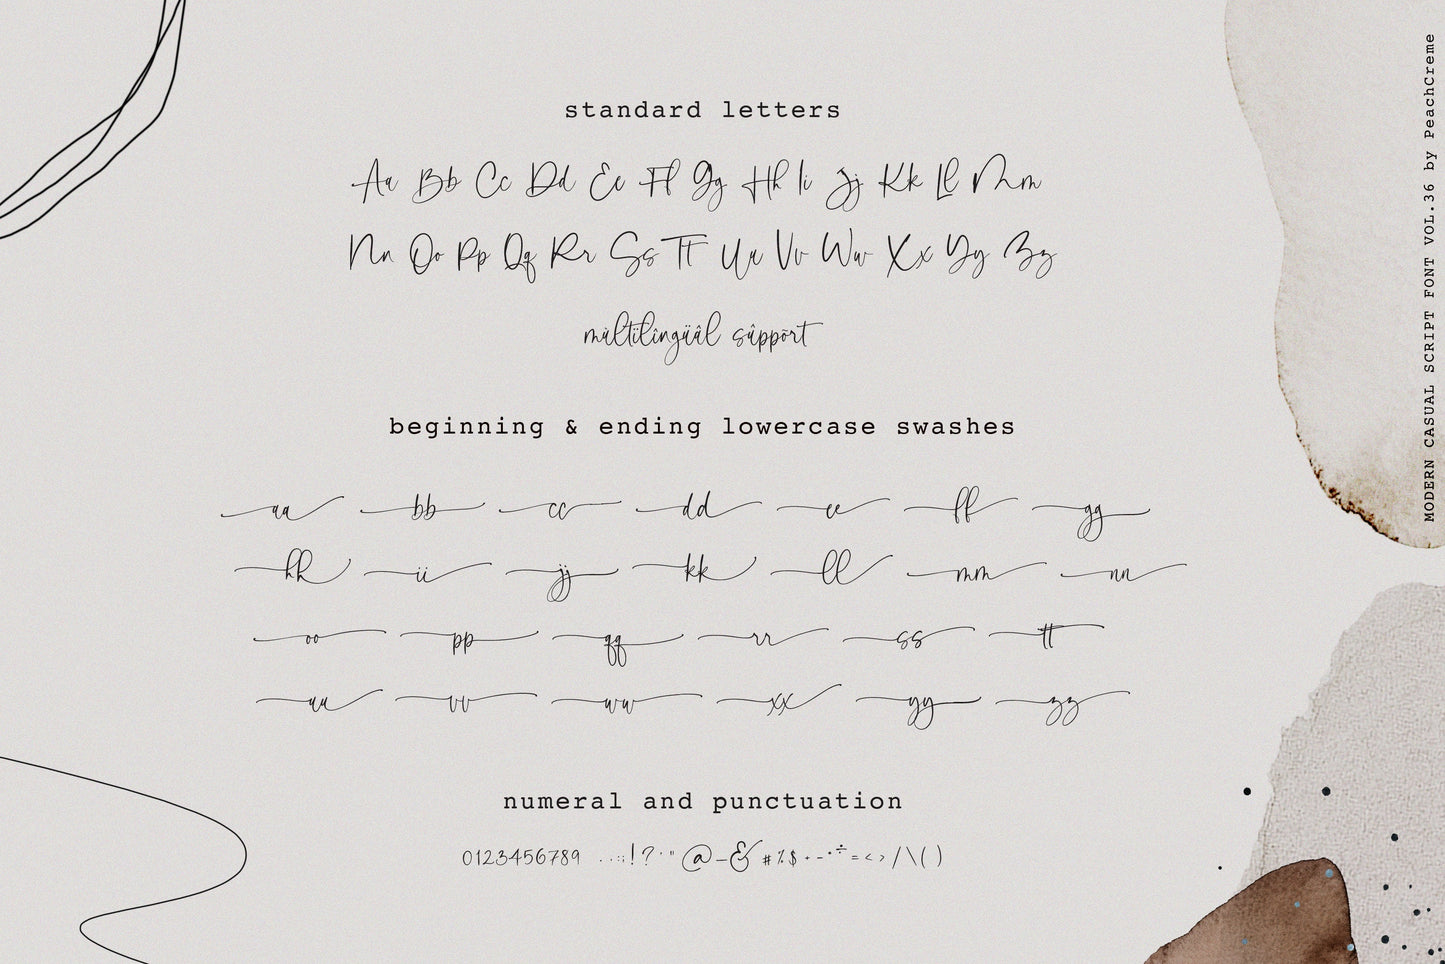 standard letters
Aa Bb Cc Dd Ee Ff Gg Hh Ii Jj Kk Ll Mm
Nn Oo Pp Qq Rr Ss Tt Uu Vv Ww Xx Yy Zz
mültïlîngüâl sûppõrt
beginning & ending lowercase swashes
aa bb cc dd ee ff gg
hh ii jj kk ll mm nn
oo pp qq rr ss tt
uu vv ww xx yy zz
numeral and punctuation
0123456789 .,:;!?'"@_&#%$+-*÷=<>/\()
MODERN CASUAL SCRIPT FONT VOL.36 by PeachCreme